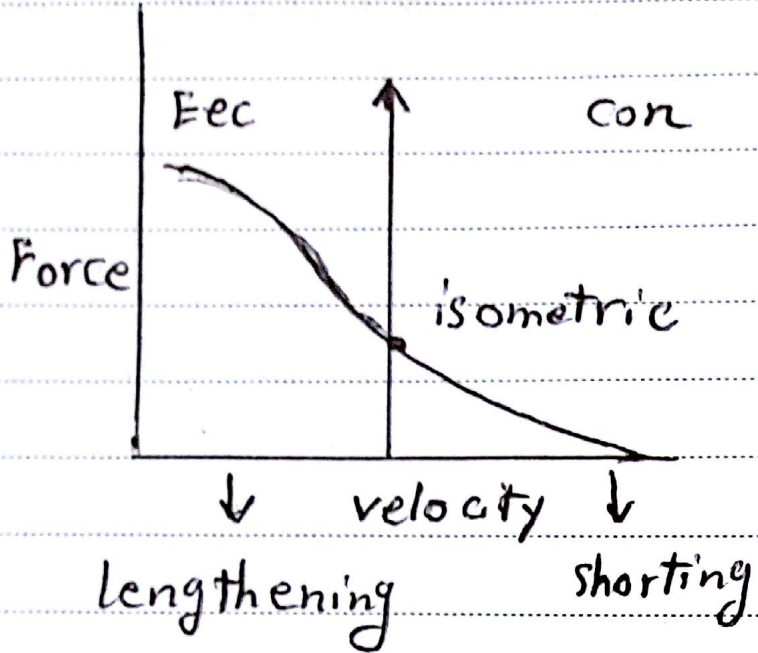 Eec con
Force
isometric
velocity
lengthening shorting